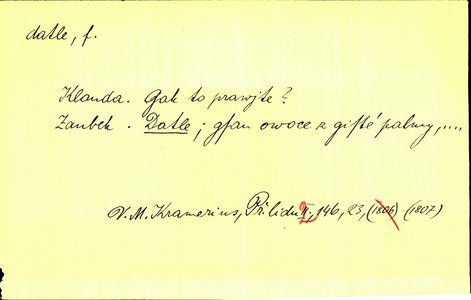 datle, f.
Klauda. Gak to prawjte?
Zaubek. Datle; gsau owoce z gisté palmy,....
V. M. Kramerius, Př. lidu II., 146, 23, (1806) (1807)